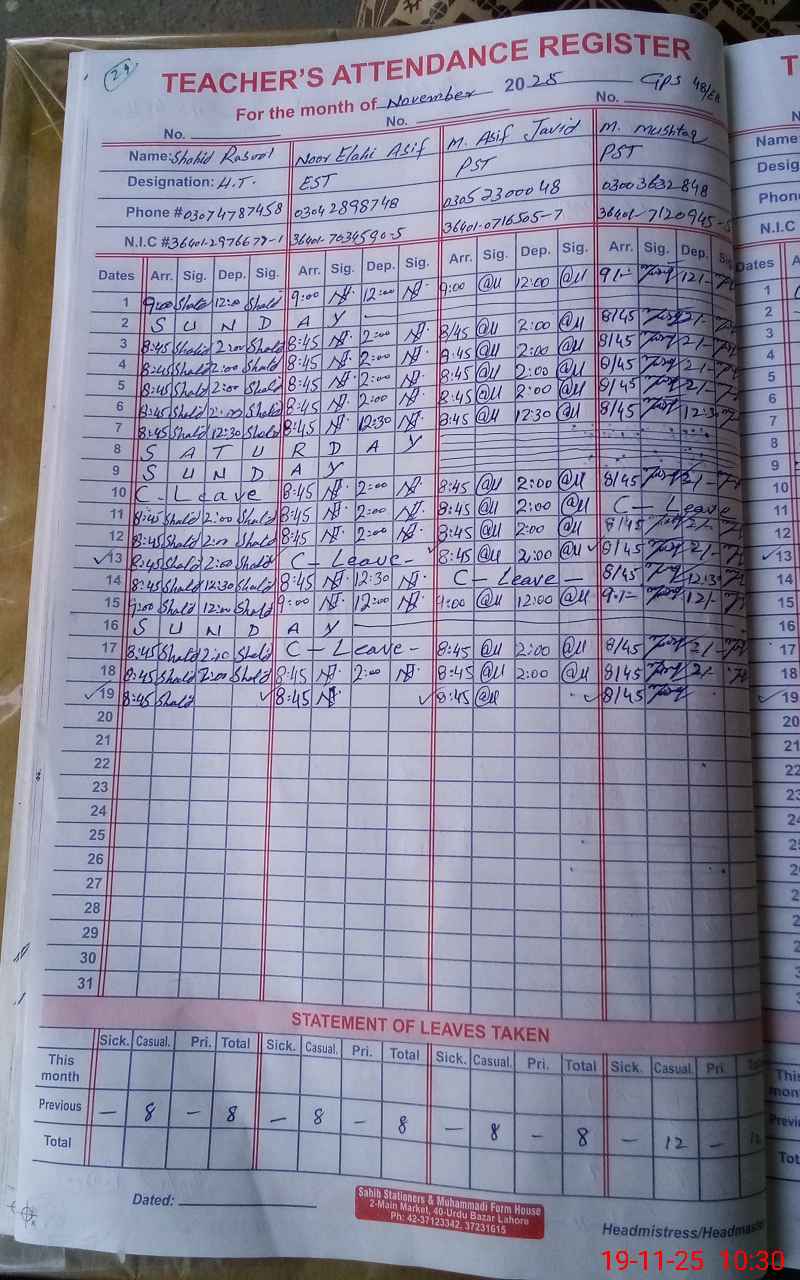 29
TEACHER'S ATTENDANCE REGISTER
For the month of November 2025 GPS 48/EB
No. No. No.
Name: Shahid Rasool Noor Elahi Asif M. Asif Javid M. Mushtaq
Designation: H.T. EST PST PST
Phone # 03074787458 03042898748 03052300048 03003632848
N.I.C # 36401-2976678-1 36401-7034590-5 36401-0716505-7 36401-7120945-5
Dates Arr. Sig. Dep. Sig. Arr. Sig. Dep. Sig. Arr. Sig. Dep. Sig. Arr. Sig. Dep. Sig.
1 9:00 Shahid 12:00 Shahid 9:00 12:00 9:00 12:00 9/- 12/-
2 S U N D A Y
3 8:45 Shahid 2:00 Shahid 8:45 2:00 8/45 2:00 8/45 2/-
4 8:45 Shahid 2:00 Shahid 8:45 2:00 8:45 2:00 8/45 2/-
5 8:45 Shahid 2:00 Shahid 8:45 2:00 8:45 2:00 8/45 2/-
6 8:45 Shahid 2:00 Shahid 8:45 2:00 8:45 2:00 8/45 2/-
7 8:45 Shahid 12:30 Shahid 8:45 12:30 8:45 12:30 8/45 12:30
8 S A T U R D A Y
9 S U N D A Y
10 C-Leave 8:45 2:00 8:45 2:00 8/45 2/-
11 8:45 Shahid 2:00 Shahid 8:45 2:00 8:45 2:00 C-Leave
12 8:45 Shahid 2:00 Shahid 8:45 2:00 8:45 2:00 8/45 2/-
13 8:45 Shahid 2:00 Shahid C-Leave- 8:45 2:00 8/45 2/-
14 8:45 Shahid 12:30 Shahid 8:45 12:30 C-Leave- 8/45 12:30
15 9:00 Shahid 12:00 Shahid 9:00 12:00 9:00 12:00 9/- 12/-
16 S U N D A Y
17 8:45 Shahid 2:00 Shahid C-Leave- 8:45 2:00 8/45 2/-
18 8:45 Shahid 2:00 Shahid 8:45 2:00 8:45 2:00 8/45 2/-
19 8:45 Shahid 8:45 8:45 8/45
20
21
22
23
24
25
26
27
28
29
30
31
STATEMENT OF LEAVES TAKEN
Sick. Casual. Pri. Total Sick. Casual. Pri. Total Sick. Casual. Pri. Total Sick. Casual. Pri.
This month
Previous - 8 - 8 - 8 - 8 - 8 - 8 - 12 - 12
Total
Dated:
Sahib Stationers & Muhammadi Form House
2-Main Market, 40-Urdu Bazar Lahore
Ph: 42-37123342, 37231615
Headmistress/Headmaster
19-11-25 10:30